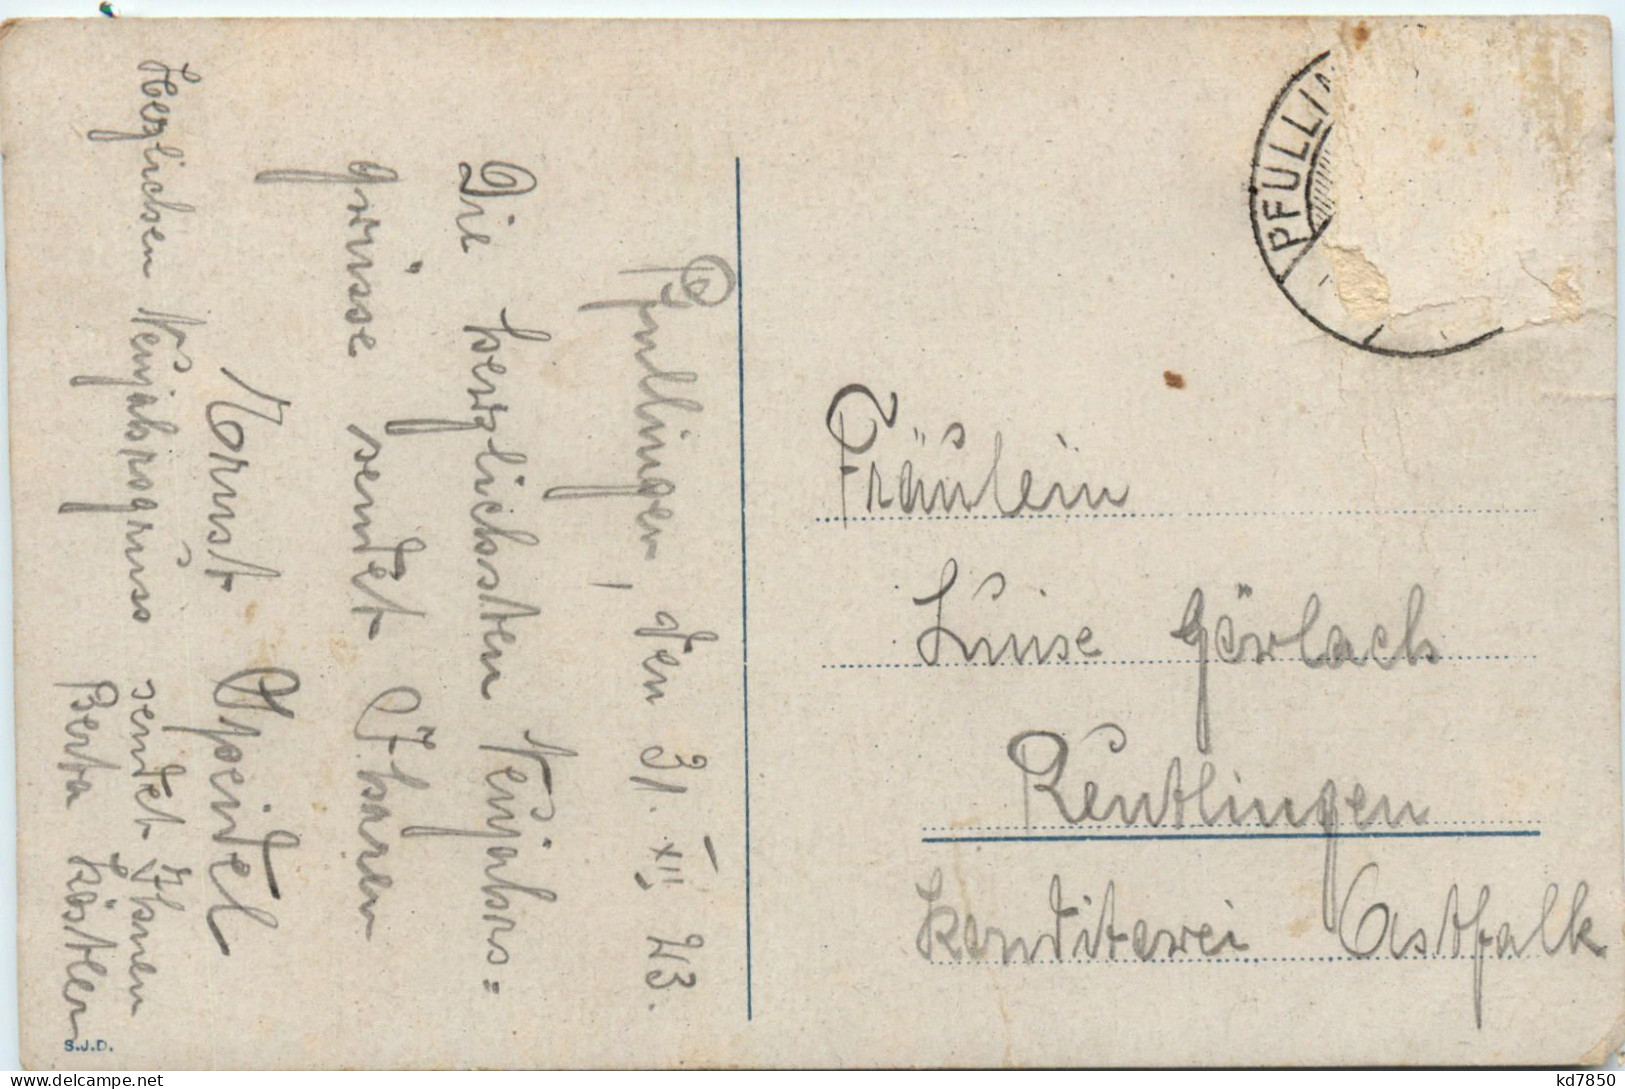 Pfullingen, den 31. XII. 23.
Die herzlichsten Neujahrs=
grüsse sendet Ihnen
Ernst Speidel
Herzlichen Neujahrsgruss sendet Ihnen
Berta Köstler
S.J.D.
PFULLIN
Fräulein
Luise Görlach
Reutlingen
Konditorei Astfalk
kd7850